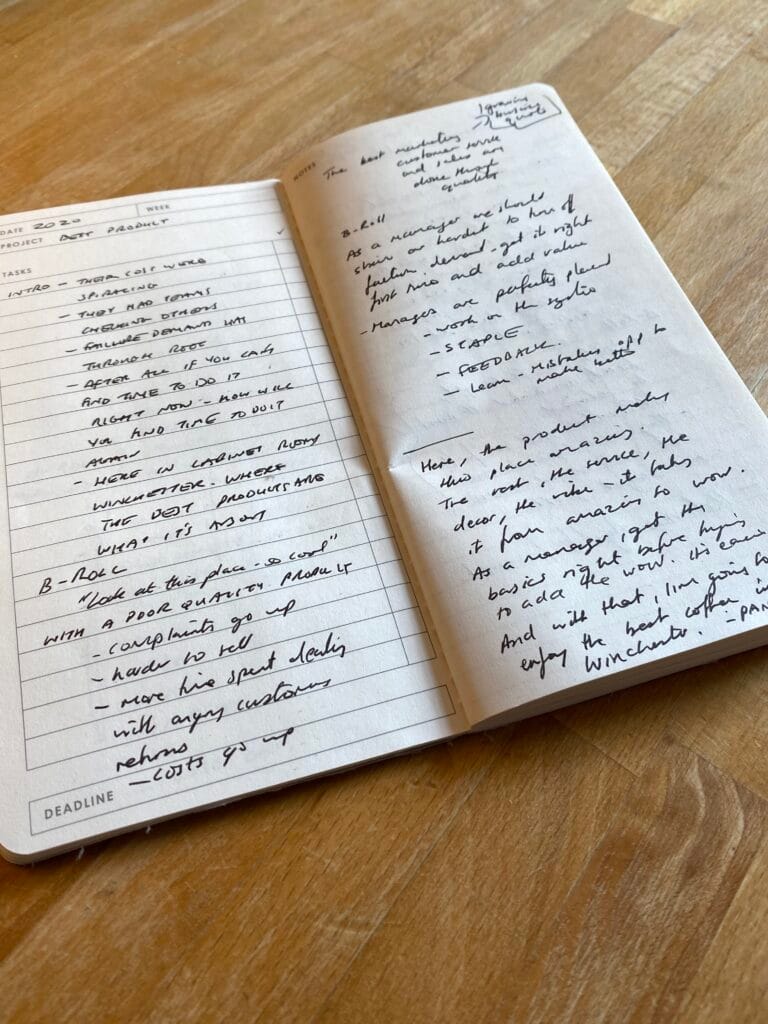 DATE 2020 WEEK
PROJECT BEST PRODUCT
TASKS ✓
INTRO - THEIR COST WERE
SPIRALING
- THEY HAD TEAMS
CHECKING OTHERS
- FAILURE DEMAND WAS
THROUGH ROOF
- AFTER ALL IF YOU CAN'T
FIND TIME TO DO IT
RIGHT NOW - HOW WILL
YOU FIND TIME TO DO IT
AGAIN
- HERE IN CABINET ROOMS
WINCHESTER. WHERE
THE BEST PRODUCTS ARE
WHAT IT'S ABOUT
B-ROLL
"Look at this place - so cool"
WITH A POOR QUALITY PRODUCT
- complaints go up
- harder to sell
- more time spent dealing
with angry customers
returns
- costs go up
DEADLINE
NOTES
quote
The best marketing
customer service
and sales are
done through
quality
B-Roll
As a manager we should
our hardest to
failure demand - get it right
first time and add value
- Managers are perfectly placed
- work on the system
- STAPLE
- FEEDBACK
- Learn - mistakes opp to
make better
Here, the product makes
this place amazing.
The roast, the service, the
decor, the vibe - it takes
it from amazing to wow.
As a manager, get the
basics right before trying
to add the wow. It's
And with that, I'm going to
enjoy the best coffee in
Winchester. - PAN